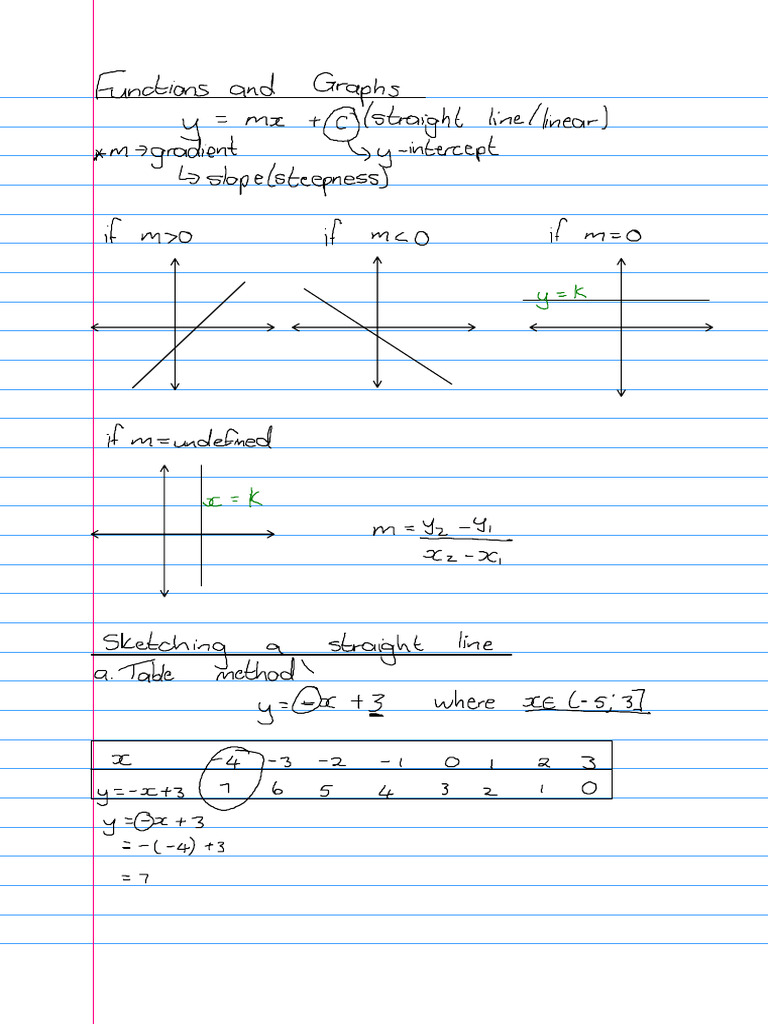 Functions and Graphs
y = mx + c (straight line/linear)
*m → gradient ↳ y-intercept
↳ slope(steepness)
if m>0 if m<0 if m=0
y = k
if m=undefined
x = k
m = y₂ - y₁ / x₂ - x₁
Sketching a straight line
a. Table method
y = -x + 3 where x∈ (-5; 3]
x -4 -3 -2 -1 0 1 2 3
y=-x+3 7 6 5 4 3 2 1 0
y = -x + 3
= -(-4) + 3
= 7